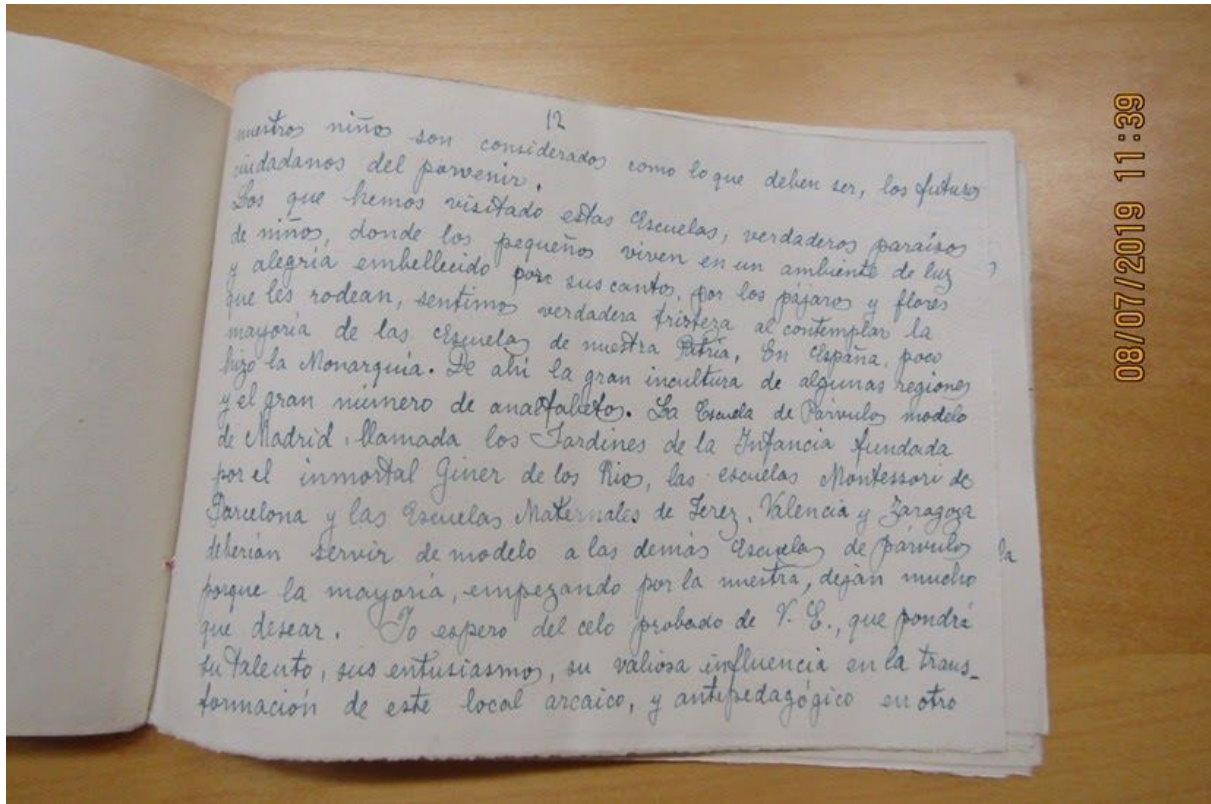 12
nuestros niños son considerados como lo que deben ser, los futuros
ciudadanos del porvenir.
Los que hemos visitado estas Escuelas, verdaderos paraísos
de niños, donde los pequeños viven en un ambiente de luz
y alegría embellecido por sus cantos, por los pájaros y flores
que les rodean, sentimos verdadera tristeza al contemplar la
mayoría de las Escuelas de nuestra Patria, En España, poco
hizo la Monarquía. De ahí la gran incultura de algunas regiones
y el gran número de analfabetos. La Escuela de Párvulos modelo
de Madrid llamada los Jardines de la Infancia fundada
por el inmortal Giner de los Rios, las escuelas Montessori de
Barcelona y las Escuelas Maternales de Jerez, Valencia y Zaragoza
deberían servir de modelo a las demás Escuelas de párvulos
porque la mayoría, empezando por la nuestra, dejan mucho
que desear. Yo espero del celo probado de V. E., que pondrá
su talento, sus entusiasmos, su valiosa influencia en la trans-
formación de este local arcaico, y antipedagógico en otro
la
08/07/2019 11:39